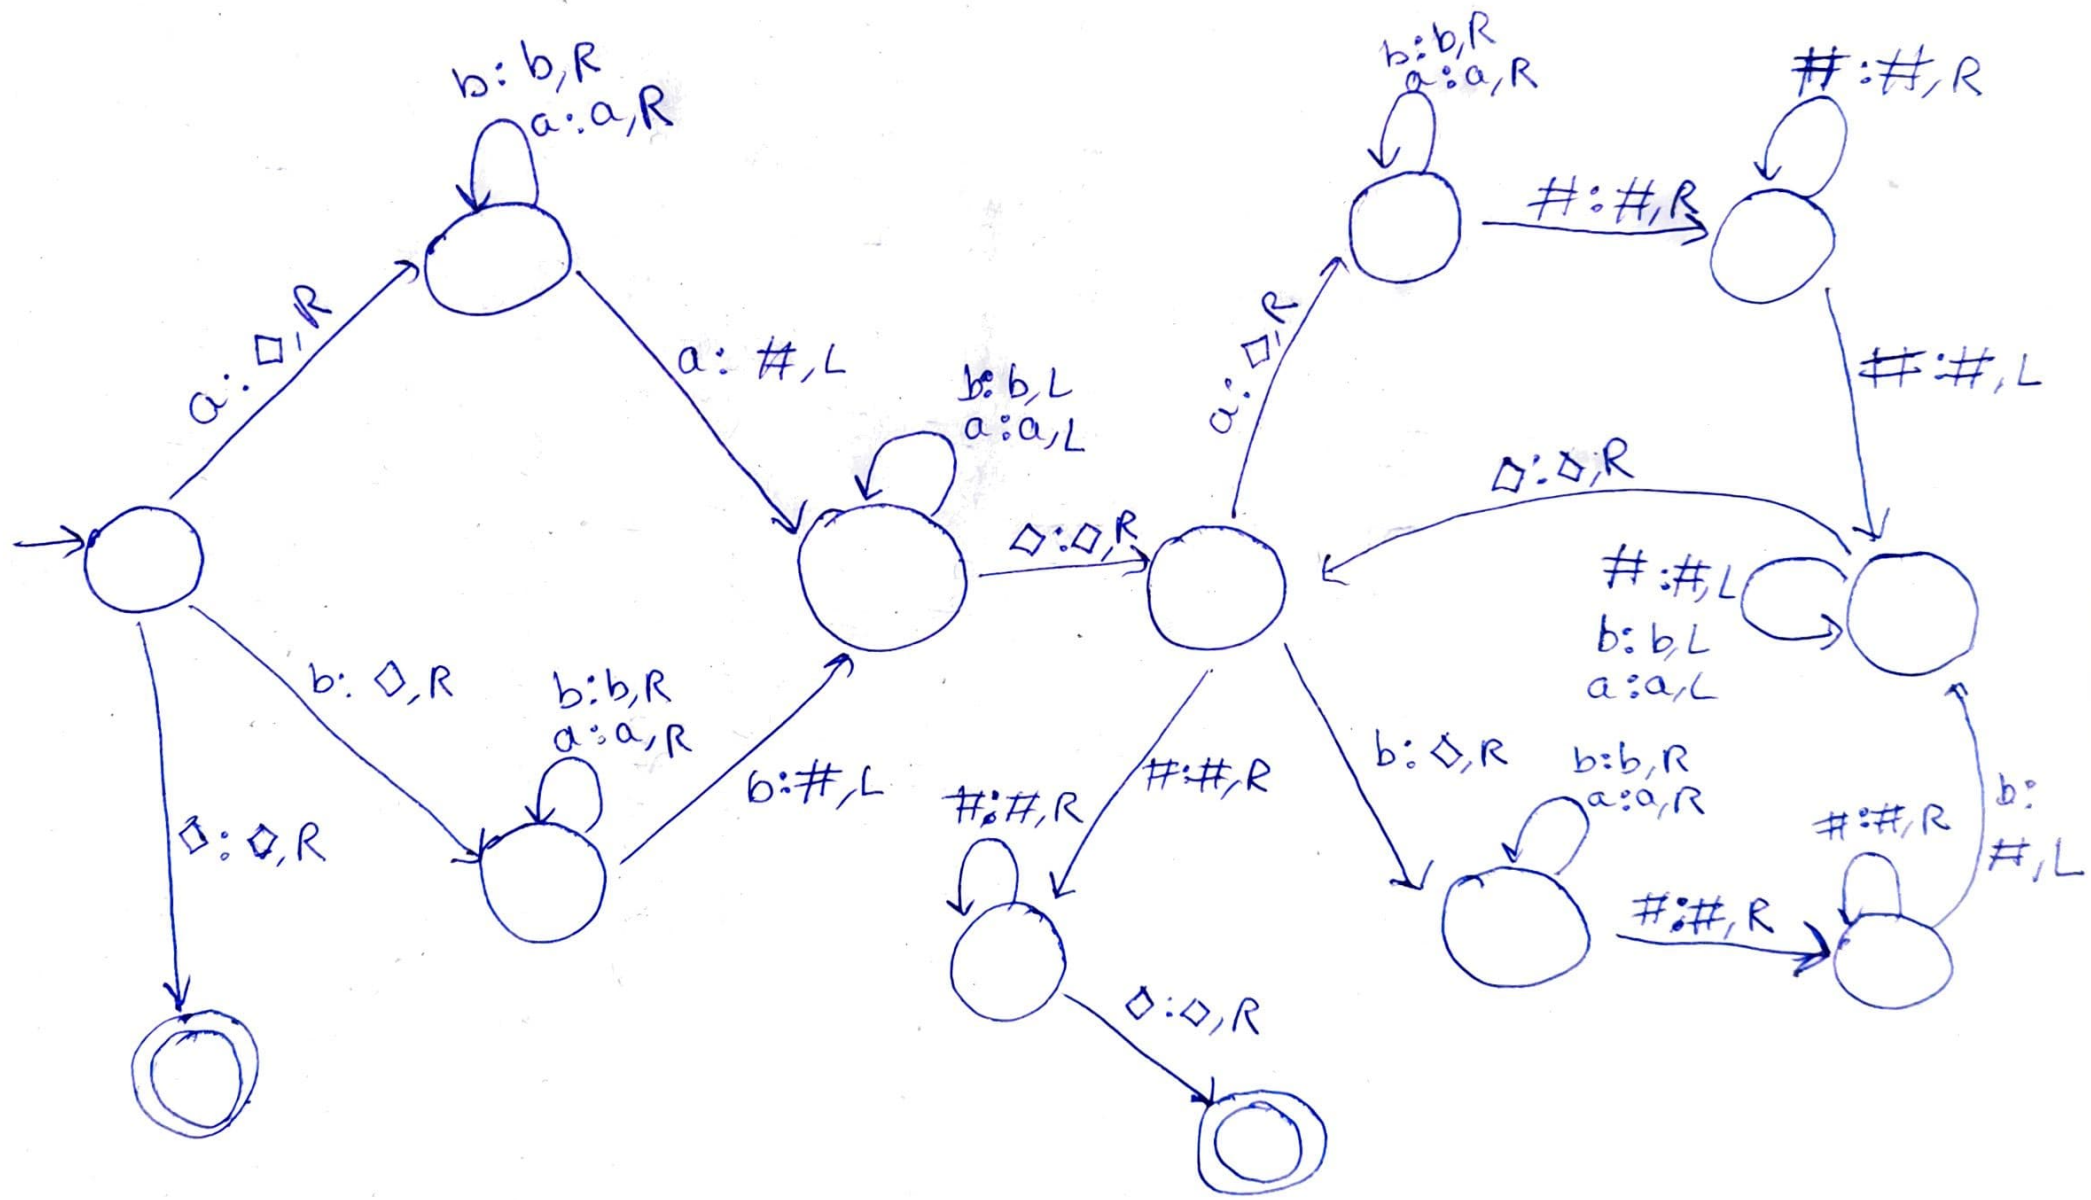 b: b,R
a: a,R
a: □,R
a: #,L
b: b,L
a: a,L
◇:◇,R
b: ◇,R
b:b,R
a:a,R
b:#,L
◇:◇,R
a: □,R
b:b,R
a:a,R
#:#,R
#:#,R
#:#,L
◇:◇,R
#:#,L
b: b,L
a:a,L
#:#,R
#:#,R
◇:◇,R
b: ◇,R
b:b,R
a:a,R
#:#,R
#:#,R
b:
#,L